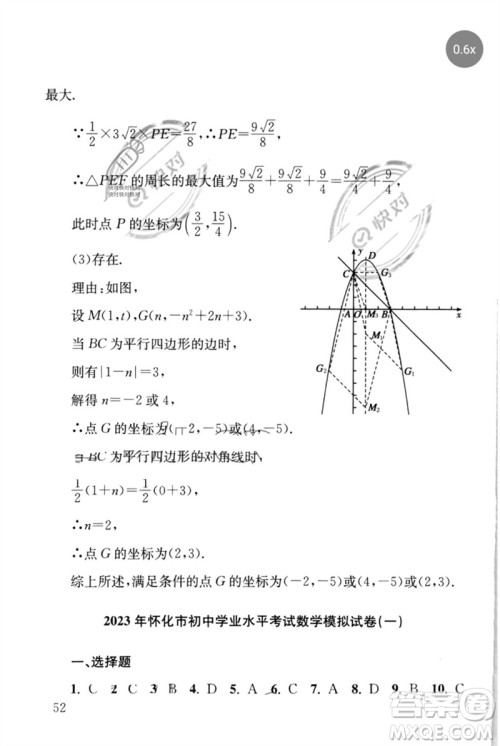 0.6x
最大.
∵1/2×3√2×PE=27/8,∴PE=9√2/8,
∴△PEF的周长的最大值为9√2/8+9√2/8+9/4=9√2/4+9/4,
此时点P的坐标为(3/2,15/4).
(3)存在.
理由:如图,
设M(1,t),G(n,-n²+2n+3).
当BC为平行四边形的边时,
则有|1-n|=3,
解得n=-2或4,
∴点G的坐标为(-2,-5)或(4,-5).
当BC为平行四边形的对角线时,
1/2(1+n)=1/2(0+3),
∴n=2,
∴点G的坐标为(2,3).
综上所述,满足条件的点G的坐标为(-2,-5)或(4,-5)或(2,3).
y
D
C
G₃
A
O
M₃
B
x
G₂
G₁
M₂
2023年怀化市初中学业水平考试数学模拟试卷(一)
一、选择题
1. C 2. C 3. B 4. D 5. A 6. C 7. B 8. B 9. B 10. C
52
快对